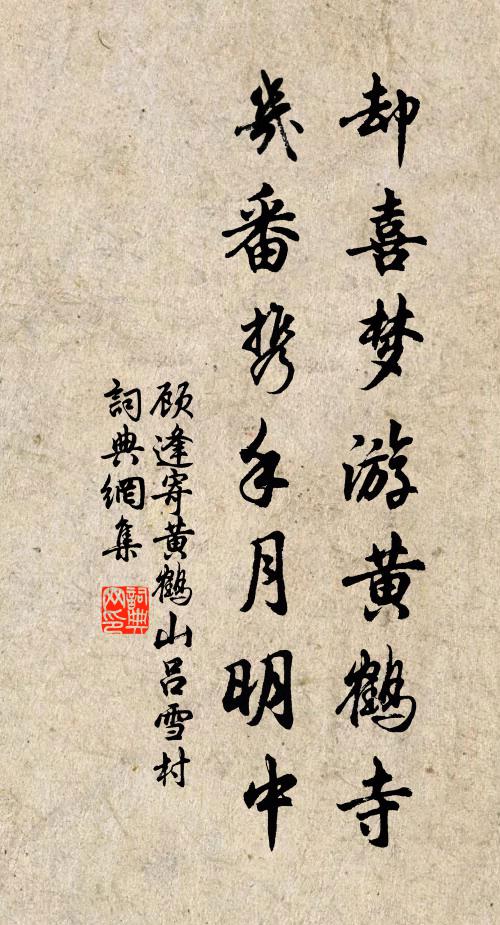 却喜梦游黄鹤寺
几番携手月明中
顾逢寄黄鹤山吕雪村
詞典網集
詞典网印